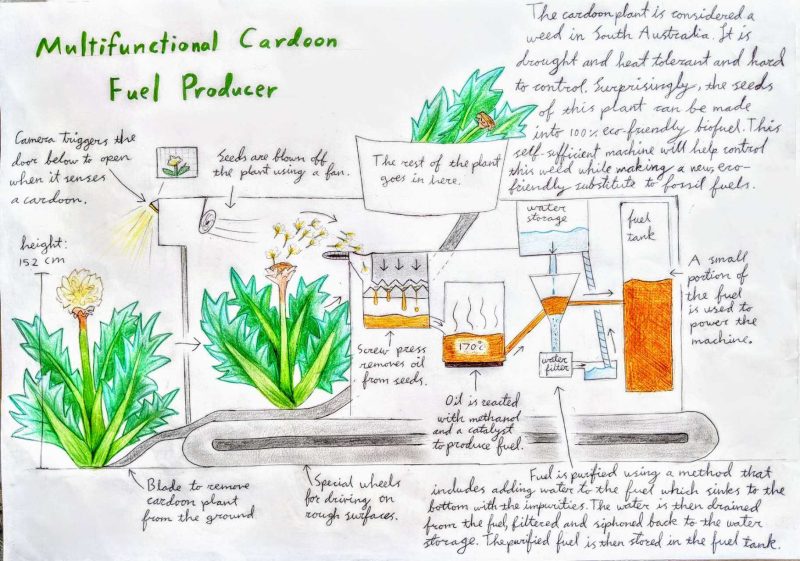 Multifunctional Cardoon
Fuel Producer
The cardoon plant is considered a
weed in South Australia. It is
drought and heat tolerant and hard
to control. Surprisingly, the seeds
of this plant can be made
into 100% eco-friendly biofuel. This
self-sufficient machine will help control
this weed while making a new, eco-
friendly substitute to fossil fuels.
Camera triggers the
door below to open
when it senses
a cardoon.
Seeds are blown off
the plant using a fan.
The rest of the plant
goes in here.
water
storage
fuel
tank
height:
152 cm
A small
portion of
the fuel
is used to
power the
machine.
Screw press
removes oil
from seeds.
170°c
water
filter
Oil is reacted
with methanol
and a catalyst
to produce fuel.
Blade to remove
cardoon plant
from the ground
Special wheels
for driving on
rough surfaces.
Fuel is purified using a method that
includes adding water to the fuel which sinks to the
bottom with the impurities. The water is then drained
from the fuel, filtered and siphoned back to the water
storage. The purified fuel is then stored in the fuel tank.